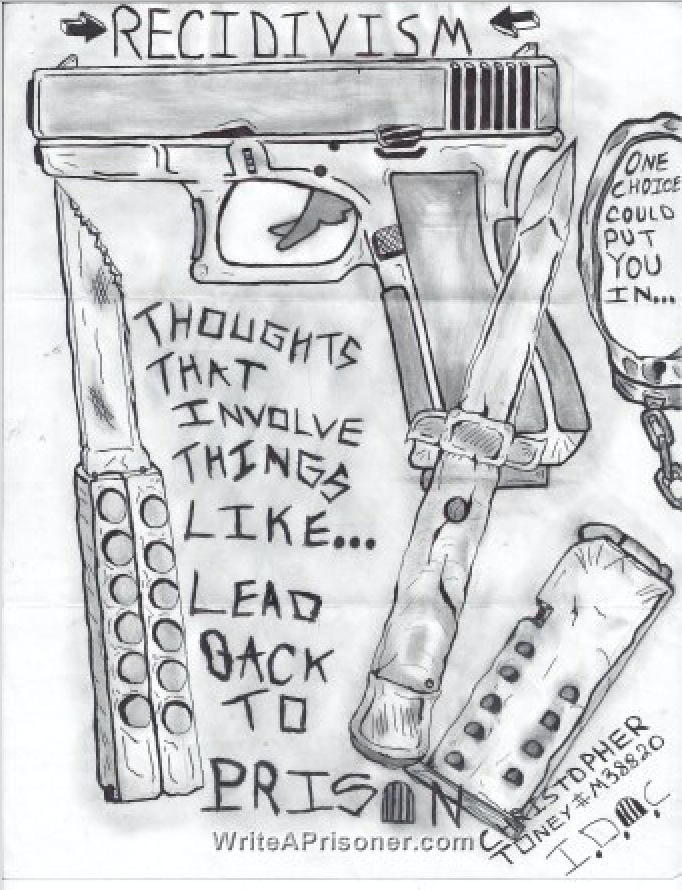 RECIDIVISM
ONE
CHOICE
COULD
PUT
YOU
IN...
THOUGHTS
THAT
INVOLVE
THINGS
LIKE...
LEAD
BACK
TO
PRISON
CHRISTOPHER
TONEY # M38820
I.D.O.C
WriteAPrisoner.com